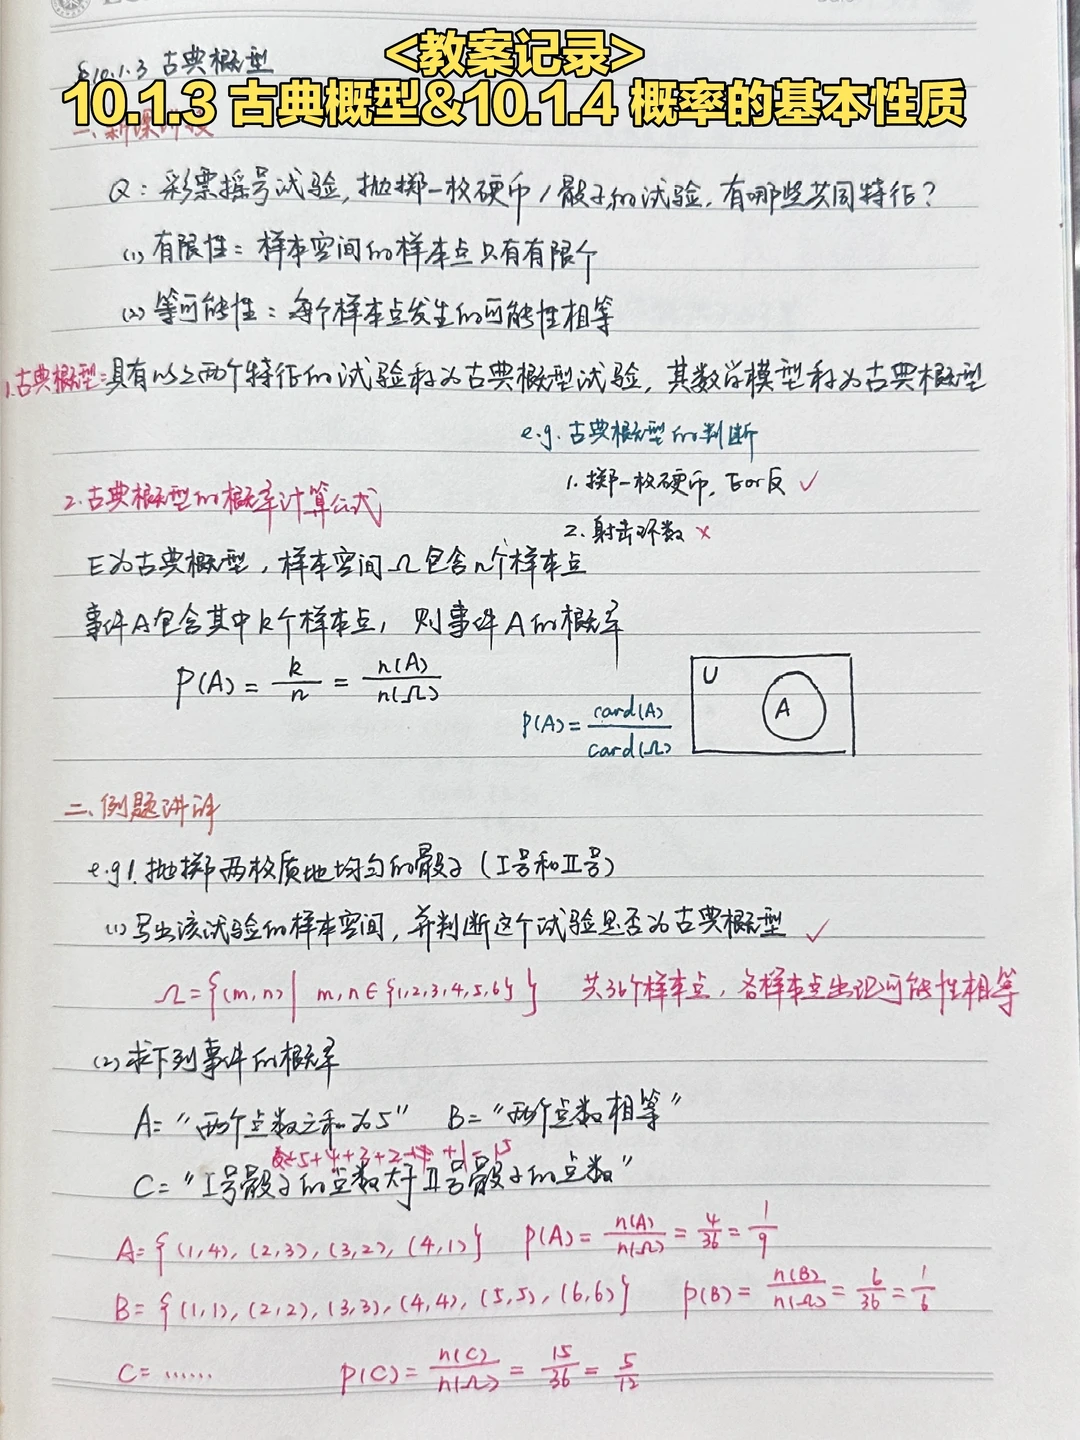 <教案记录>
§10.1.3 古典概型
10.1.3 古典概型&10.1.4 概率的基本性质
一、新课讲授
Q：彩票摇号试验，抛掷一枚硬币/骰子的试验，有哪些共同特征？
(1) 有限性：样本空间的样本点只有有限个
(2) 等可能性：每个样本点发生的可能性相等
1.古典概型：具有以上两个特征的试验称为古典概型试验，其数学模型称为古典概型
e.g. 古典概型的判断
1. 掷一枚硬币，正or反 ✓
2. 射击环数 ×
2.古典概型的概率计算公式
E为古典概型，样本空间Ω包含n个样本点
事件A包含其中k个样本点，则事件A的概率
P(A) = k/n = n(A)/n(Ω)
P(A) = card(A)/card(Ω)
U A
二、例题讲解
e.g1. 抛掷两枚质地均匀的骰子（I号和II号）
(1) 写出该试验的样本空间，并判断这个试验是否为古典概型 ✓
Ω={(m,n)| m,n∈{1,2,3,4,5,6}} 共36个样本点，各样本点出现可能性相等
(2) 求下列事件的概率
A="两个点数之和为5" B="两个点数相等"
5+4+3+2+1=15
C="I号骰子的点数大于II号骰子的点数"
A={(1,4),(2,3),(3,2),(4,1)} P(A)=n(A)/n(Ω)=4/36=1/9
B={(1,1),(2,2),(3,3),(4,4),(5,5),(6,6)} P(B)=n(B)/n(Ω)=6/36=1/6
C=…… P(C)=n(C)/n(Ω)=15/36=5/12